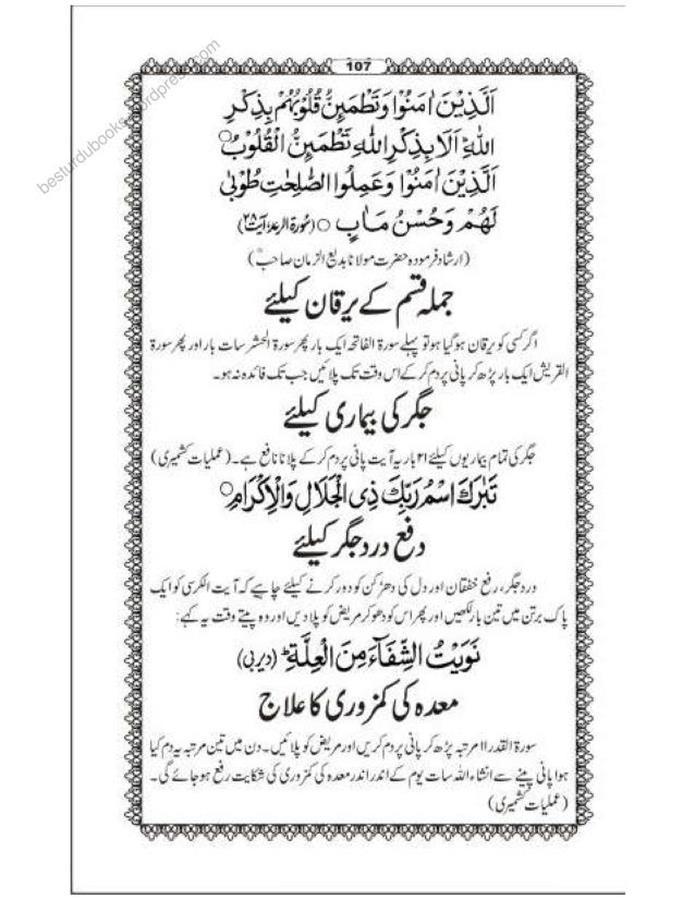 besturdubooks.wordpress.com
107
اَلَّذِیْنَ اٰمَنُوْا وَتَطْمَئِنُّ قُلُوْبُهُمْ بِذِكْرِ
اللّٰهِ ؕ اَلَا بِذِكْرِ اللّٰهِ تَطْمَئِنُّ الْقُلُوْبُ ○
اَلَّذِیْنَ اٰمَنُوْا وَعَمِلُوا الصّٰلِحٰتِ طُوْبٰی
لَهُمْ وَحُسْنُ مَاٰبٍ ○ (سُورۃ الرعد، آیت ۲۸)
(ارشاد فرمودہ حضرت مولانا بدیع الزمان صاحبؒ)
جملہ قسم کے یرقان کیلئے
اگر کسی کو یرقان ہو گیا ہو تو پہلے سورۃ الفاتحہ ایک بار پھر سورۃ الحشر سات بار اور پھر سورۃ
القریش ایک بار پڑھ کر پانی پر دم کر کے اس وقت تک پلائیں جب تک فائدہ نہ ہو۔
جگر کی بیماری کیلئے
جگر کی تمام بیماریوں کیلئے ۲۱ بار یہ آیت پانی پر دم کر کے پلانا نافع ہے۔ (عملیات کشمیری)
تَبٰرَكَ اسْمُ رَبِّكَ ذِی الْجَلَالِ وَالْاِكْرَامِ ○
دفع درد جگر کیلئے
درد جگر، رفع خفقان اور دل کی دھڑکن کو دور کرنے کیلئے چاہیے کہ آیت الکرسی کو ایک
پاک برتن میں تین بار لکھیں اور پھر اس کو دھو کر مریض کو پلا دیں اور وہ پیتے وقت یہ کہے:
نَوَیْتُ الشِّفَآءَ مِنَ الْعِلَّةِ ؕ (دیربی)
معدہ کی کمزوری کا علاج
سورۃ القدر ۱۱ مرتبہ پڑھ کر پانی پر دم کریں اور مریض کو پلائیں۔ دن میں تین مرتبہ یہ دم کیا
ہوا پانی پینے سے انشاء اللہ سات یوم کے اندر اندر معدہ کی کمزوری کی شکایت رفع ہو جائے گی۔
(عملیات کشمیری)